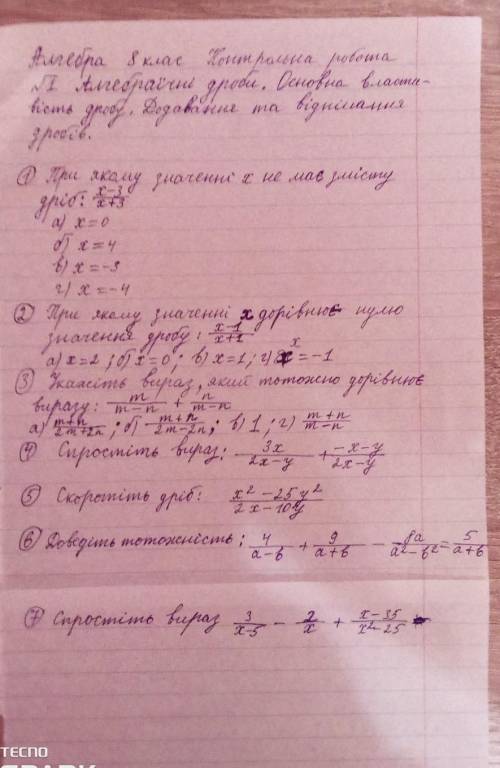 Алгебра 8 клас Контрольна робота
№1 Алгебраїчні дроби. Основна власти-
вість дробу. Додавання та віднімання
дробів.
① При якому значенні х не має змісту
дріб: (x-3)/(x+3)
а) x=0
б) x=4
в) x=-3
г) x=-4
② При якому значенні х дорівнює нулю
значення дробу: (x-1)/(x+2)
а) x=2; б) x=0; в) x=1; г) x=-1
③ Укажіть вираз, який тотожно дорівнює
виразу: m/(m-n) + n/(m-n)
а) (m+n)/(2m+2n); б) (m+n)/(2m-2n); в) 1; г) (m+n)/(m-n)
④ Спростіть вираз: 3x/(2x-y) + (-x-y)/(2x-y)
⑤ Скоротіть дріб: (x²-25y²)/(2x-10y)
⑥ Доведіть тотожність: 4/(a-b) + 9/(a+b) - 8a/(a²-b²) = 5/(a+b)
⑦ Спростіть вираз 3/(x-5) - 2/x + (x-35)/(x²-25)
TECNO
SPARK